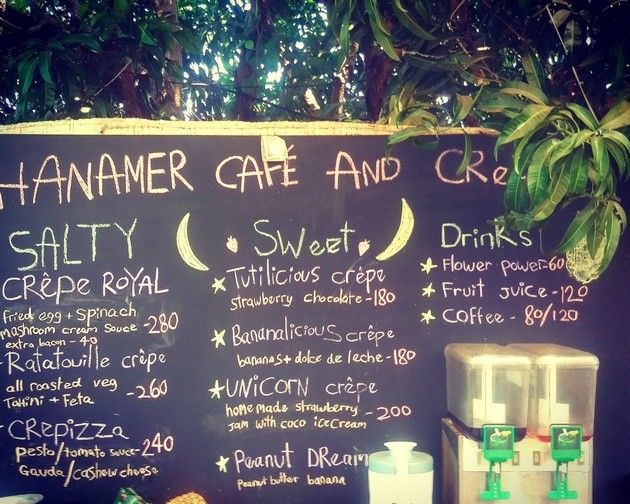 HANAMER CAFÉ AND CRê
SALTY
CRêpe ROYAL
fried egg + spinach
mushroom cream sauce - 280
extra bacon - 40
Ratatouille crêpe
all roasted veg
Tahini + Feta - 260
CRepizza
pesto/tomato sauce - 240
Gouda/cashew cheese
Sweet
Tutilicious crêpe
strawberry chocolate - 180
Bananalicious crêpe
bananas + dolce de leche - 180
UNICORN crêpe
home made strawberry - 200
jam with coco icecream
Peanut DReam
Peanut butter banana
Drinks
Flower power - 60
Fruit juice - 120
Coffee - 80/120